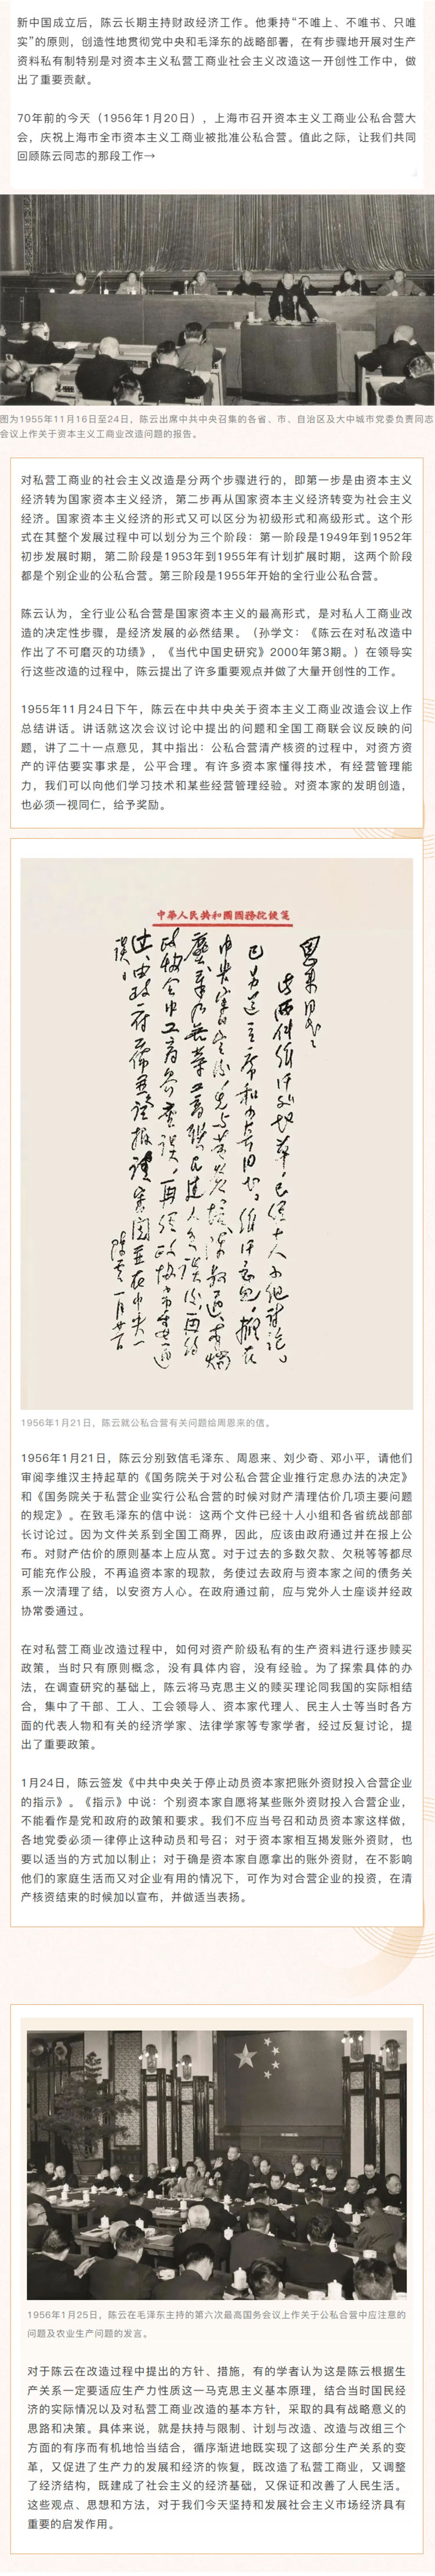 新中国成立后，陈云长期主持财政经济工作。他秉持“不唯上、不唯书、只唯
实”的原则，创造性地贯彻党中央和毛泽东的战略部署，在有步骤地开展对生产
资料私有制特别是对资本主义私营工商业社会主义改造这一开创性工作中，做
出了重要贡献。
70年前的今天（1956年1月20日），上海市召开资本主义工商业公私合营大
会，庆祝上海市全市资本主义工商业被批准公私合营。值此之际，让我们共同
回顾陈云同志的那段工作→
图为1955年11月16日至24日，陈云出席中共中央召集的各省、市、自治区及大中城市党委负责同志
会议上作关于资本主义工商业改造问题的报告。
对私营工商业的社会主义改造是分两个步骤进行的，即第一步是由资本主义
经济转为国家资本主义经济，第二步再从国家资本主义经济转变为社会主义
经济。国家资本主义经济的形式又可以区分为初级形式和高级形式。这个形
式在其整个发展过程中可以划分为三个阶段：第一阶段是1949年到1952年
初步发展时期，第二阶段是1953年到1955年有计划扩展时期，这两个阶段
都是个别企业的公私合营。第三阶段是1955年开始的全行业公私合营。
陈云认为，全行业公私合营是国家资本主义的最高形式，是对私人工商业改
造的决定性步骤，是经济发展的必然结果。（孙学文：《陈云在对私改造中
作出了不可磨灭的功绩》，《当代中国史研究》2000年第3期。）在领导实
行这些改造的过程中，陈云提出了许多重要观点并做了大量开创性的工作。
1955年11月24日下午，陈云在中共中央关于资本主义工商业改造会议上作
总结讲话。讲话就这次会议讨论中提出的问题和全国工商联会议反映的问
题，讲了二十一点意见，其中指出：公私合营清产核资的过程中，对资方资
产的评估要实事求是，公平合理。有许多资本家懂得技术，有经营管理能
力，我们可以向他们学习技术和某些经营管理经验。对资本家的发明创造，
也必须一视同仁，给予奖励。
中華人民共和國國務院便箋
1956年1月21日，陈云就公私合营有关问题给周恩来的信。
1956年1月21日，陈云分别致信毛泽东、周恩来、刘少奇、邓小平，请他们
审阅李维汉主持起草的《国务院关于对公私合营企业推行定息办法的决定》
和《国务院关于私营企业实行公私合营的时候对财产清理估价几项主要问题
的规定》。在致毛泽东的信中说：这两个文件已经十人小组和各省统战部部
长讨论过。因为文件关系到全国工商界，因此，应该由政府通过并在报上公
布。对财产估价的原则基本上应从宽。对于过去的多数欠款、欠税等等都尽
可能充作公股，不再追资本家的现款，务使过去政府与资本家之间的债务关
系一次清理了结，以安资方人心。在政府通过前，应与党外人士座谈并经政
协常委通过。
在对私营工商业改造过程中，如何对资产阶级私有的生产资料进行逐步赎买
政策，当时只有原则概念，没有具体内容，没有经验。为了探索具体的办
法，在调查研究的基础上，陈云将马克思主义的赎买理论同我国的实际相结
合，集中了干部、工人、工会领导人、资本家代理人、民主人士等当时各方
面的代表人物和有关的经济学家、法律学家等专家学者，经过反复讨论，提
出了重要政策。
1月24日，陈云签发《中共中央关于停止动员资本家把账外资财投入合营企业
的指示》。《指示》中说：个别资本家自愿将某些账外资财投入合营企业，
不能看作是党和政府的政策和要求。我们不应当号召和动员资本家这样做，
各地党委必须一律停止这种动员和号召；对于资本家相互揭发账外资财，也
要以适当的方式加以制止；对于确是资本家自愿拿出的账外资财，在不影响
他们的家庭生活而又对企业有用的情况下，可作为对合营企业的投资，在清
产核资结束的时候加以宣布，并做适当表扬。
1956年1月25日，陈云在毛泽东主持的第六次最高国务会议上作关于公私合营中应注意的
问题及农业生产问题的发言。
对于陈云在改造过程中提出的方针、措施，有的学者认为这是陈云根据生
产关系一定要适应生产力性质这一马克思主义基本原理，结合当时国民经
济的实际情况以及对私营工商业改造的基本方针，采取的具有战略意义的
思路和决策。具体来说，就是扶持与限制、计划与改造、改造与改组三个
方面的有序而有机地恰当结合，循序渐进地既实现了这部分生产关系的变
革，又促进了生产力的发展和经济的恢复，既改造了私营工商业，又调整
了经济结构，既建成了社会主义的经济基础，又保证和改善了人民生活。
这些观点、思想和方法，对于我们今天坚持和发展社会主义市场经济具有
重要的启发作用。